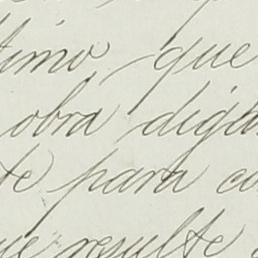 timo, que
obra digita
te para co
que resulte